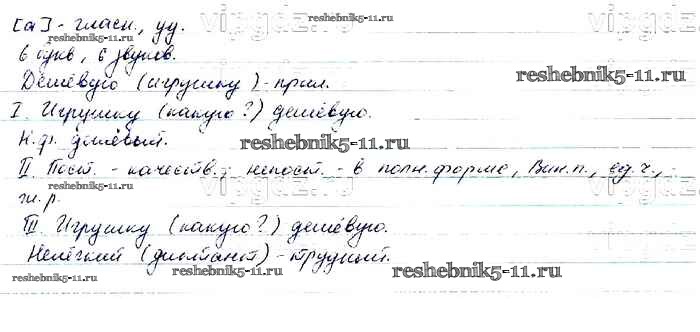 [а] - гласн., уд.
6 букв, 6 звуков.
Дешёвую (игрушку) - прил.
I. Игрушку (какую?) дешёвую.
Н.ф. дешёвый.
II Пост. - качеств.; непост. - в полн. форме, Вин.п., ед.ч.,
ж.р.
III. Игрушку (какую?) дешёвую.
Нелёгкий (диктант) - трудный.
vipgdz.com
reshebnik5-11.ru
reshebnik5-11.ru
reshebnik5-11.ru
reshebnik5-11.ru
reshebnik5-11.ru